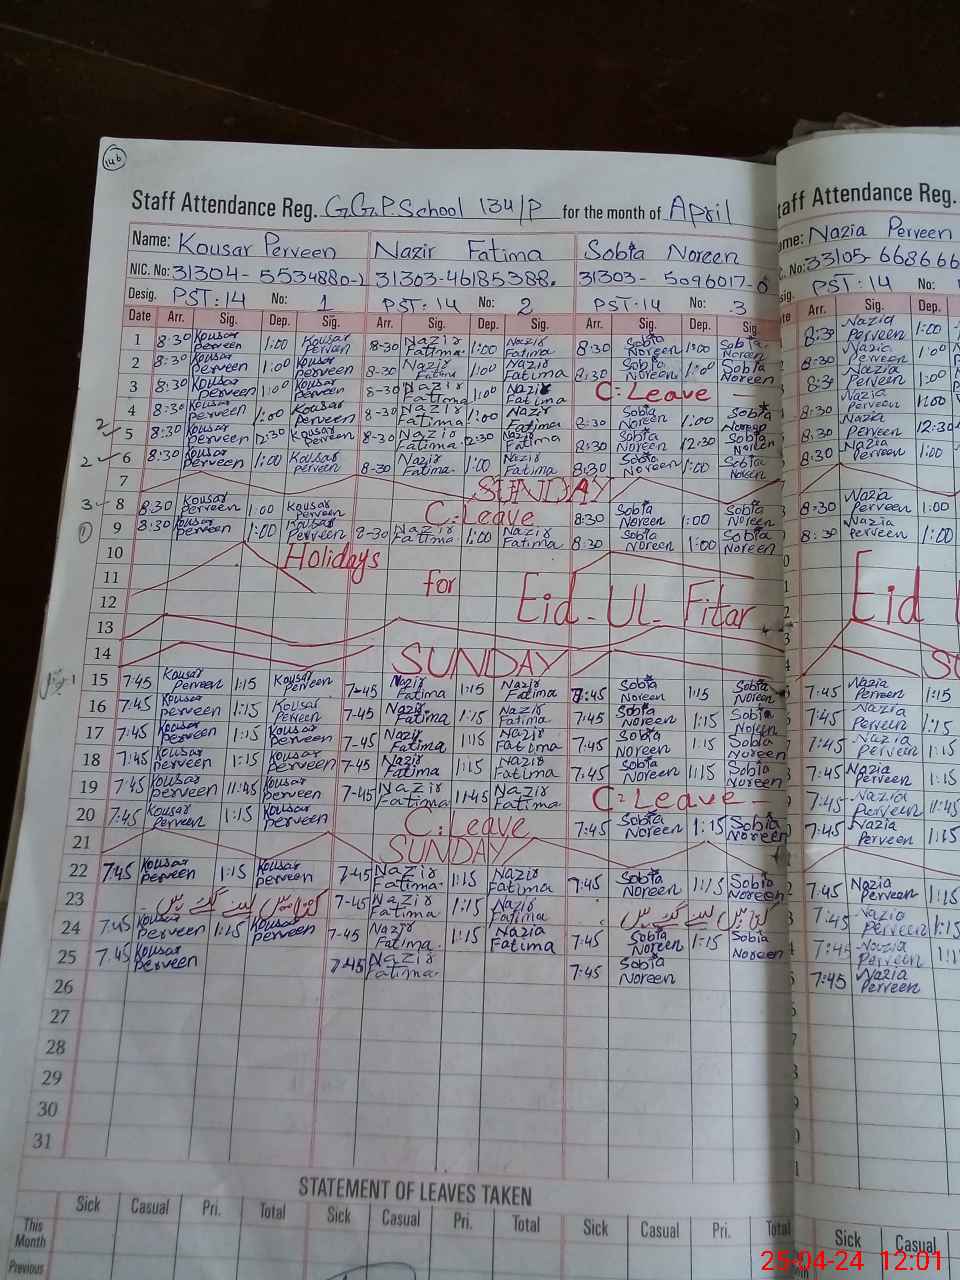 146
Staff Attendance Reg. G.G.P.School 134/P for the month of April
Name: Kousar Perveen Nazir Fatima Sobia Noreen
NIC. No: 31304-5534880-2 31303-46185388. 31303-5096017-0
Desig. PST:14 No: 1 PST:14 No: 2 PST:14 No: 3
Date Arr. Sig. Dep. Sig. Arr. Sig. Dep. Sig. Arr. Sig. Dep. Sig.
1 8:30 Kousar Perveen 1:00 Kousar Perveen 8-30 Nazir Fatima 1:00 Nazir Fatima 8:30 Sobia Noreen 1:00 Sobia Noreen
2 8:30 Kousar Perveen 1:00 Kousar Perveen 8-30 Nazir Fatima 1:00 Nazir Fatima 8:30 Sobia Noreen 1:00 Sobia Noreen
3 8:30 Kousar Perveen 1:00 Kousar Perveen 8-30 Nazir Fatima 1:00 Nazir Fatima C:Leave
4 8:30 Kousar Perveen 1:00 Kousar Perveen 8-30 Nazir Fatima 1:00 Nazir Fatima 8:30 Sobia Noreen 1:00 Sobia Noreen
2 5 8:30 Kousar Perveen 12:30 Kousar Perveen 8-30 Nazir Fatima 12:30 Nazir Fatima 8:30 Sobia Noreen 12:30 Sobia Noreen
2 6 8:30 Kousar Perveen 1:00 Kousar Perveen 8-30 Nazir Fatima 1:00 Nazir Fatima 8:30 Sobia Noreen 1:00 Sobia Noreen
7 SUNDAY
3 8 8:30 Kousar Perveen 1:00 Kousar Perveen C:Leave 8:30 Sobia Noreen 1:00 Sobia Noreen
1 9 8:30 Kousar Perveen 1:00 Kousar Perveen 8-30 Nazir Fatima 1:00 Nazir Fatima 8:30 Sobia Noreen 1:00 Sobia Noreen
10 Holidays
11 for Eid-Ul-Fitar
12
13
14 SUNDAY
15 7:45 Kousar Perveen 1:15 Kousar Perveen 7-45 Nazir Fatima 1:15 Nazir Fatima 7:45 Sobia Noreen 1:15 Sobia Noreen
16 7:45 Kousar Perveen 1:15 Kousar Perveen 7-45 Nazir Fatima 1:15 Nazir Fatima 7:45 Sobia Noreen 1:15 Sobia Noreen
17 7:45 Kousar Perveen 1:15 Kousar Perveen 7-45 Nazir Fatima 1:15 Nazir Fatima 7:45 Sobia Noreen 1:15 Sobia Noreen
18 7:45 Kousar Perveen 1:15 Kousar Perveen 7-45 Nazir Fatima 1:15 Nazir Fatima 7:45 Sobia Noreen 1:15 Sobia Noreen
19 7:45 Kousar Perveen 11:45 Kousar Perveen 7-45 Nazir Fatima 11:45 Nazir Fatima C:Leave
20 7:45 Kousar Perveen 1:15 Kousar Perveen C:Leave 7:45 Sobia Noreen 1:15 Sobia Noreen
21 SUNDAY
22 7:45 Kousar Perveen 1:15 Kousar Perveen 7-45 Nazir Fatima 1:15 Nazir Fatima 7:45 Sobia Noreen 1:15 Sobia Noreen
23 7-45 Nazir Fatima 1:15 Nazir Fatima
24 7:45 Kousar Perveen 1:15 Kousar Perveen 7-45 Nazir Fatima 1:15 Nazia Fatima 7:45 Sobia Noreen 1:15 Sobia Noreen
25 7:45 Kousar Perveen 7:45 Nazir Fatima 7:45 Sobia Noreen
26
27
28
29
30
31
STATEMENT OF LEAVES TAKEN
Sick Casual Pri. Total Sick Casual Pri. Total Sick Casual Pri. Total
This Month
Previous
taff Attendance Reg.
ame: Nazia Perveen
C. No: 33105-668666
sig. PST:14
te Arr. Sig. Dep.
8:30 Nazia Perveen 1:00
8:30 Nazia Perveen 1:00
8:30 Nazia Perveen 1:00
8:30 Nazia Perveen 1:00
8:30 Nazia Perveen 12:30
8:30 Nazia Perveen 1:00
8:30 Nazia Perveen 1:00
8:30 Nazia Perveen 1:00
Eid
7:45 Nazia Perveen 1:15
7:45 Nazia Perveen 1:15
7:45 Nazia Perveen 1:15
7:45 Nazia Perveen 1:15
7:45 Nazia Perveen 11:45
7:45 Nazia Perveen 1:15
7:45 Nazia Perveen 1:15
7:45 Nazia Perveen 1:15
7:45 Nazia Perveen
7:45 Nazia Perveen
Sick Casual
25-04-24 12:01